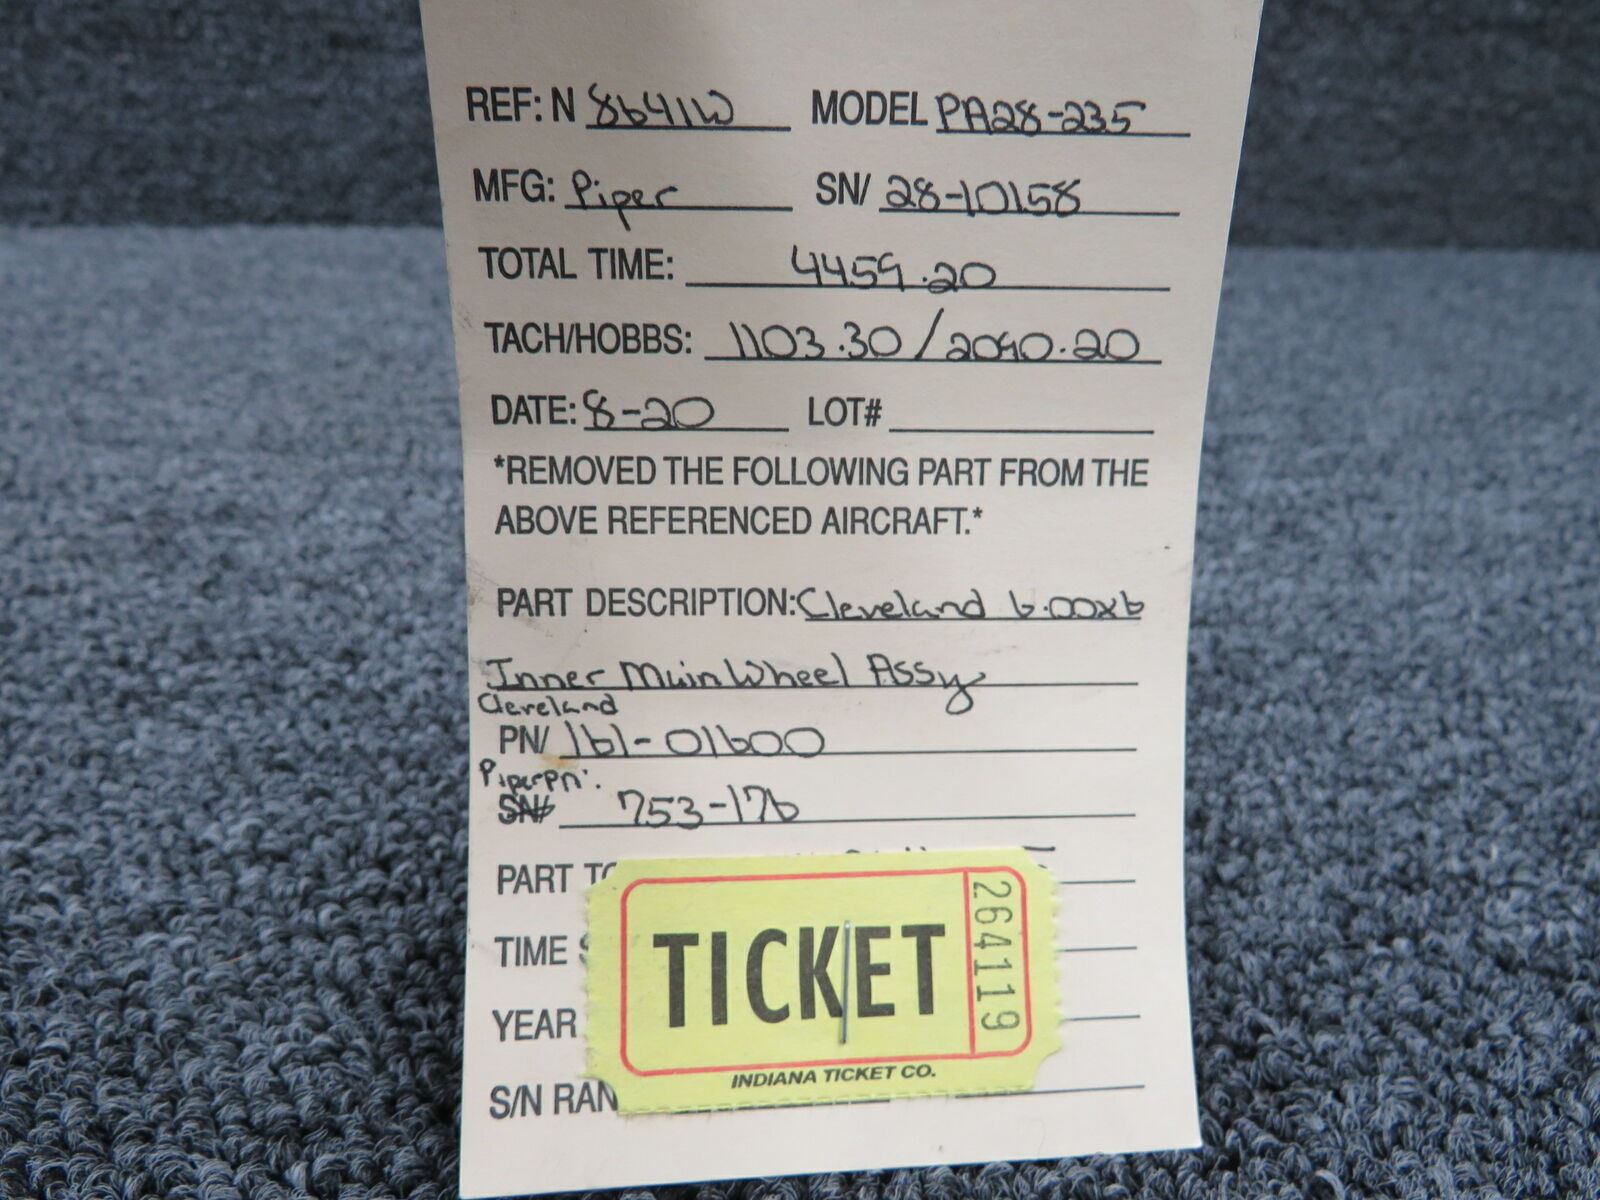 REF: N 8641W MODEL PA28-235
MFG: Piper SN/ 28-10158
TOTAL TIME: 4459.20
TACH/HOBBS: 1103.30/2090.20
DATE: 8-20 LOT#
*REMOVED THE FOLLOWING PART FROM THE
ABOVE REFERENCED AIRCRAFT.*
PART DESCRIPTION: Cleveland 6.00x6
Inner Main Wheel Assy
Cleveland
PN/ 161-01600
Piper PN:
SN# 753-176
PART
TIME
YEAR
S/N
TICKET
264119
INDIANA TICKET CO.